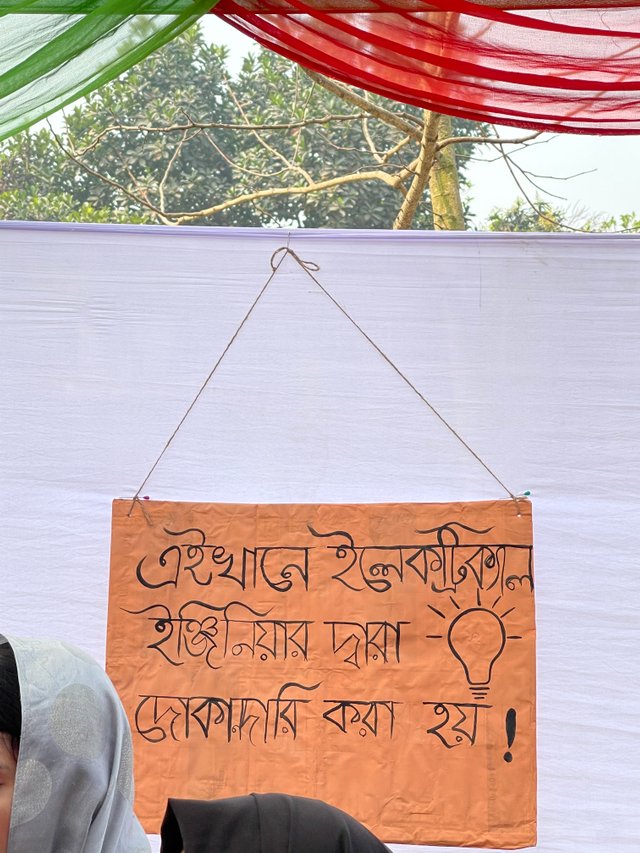 এইখানে ইলেকট্রিক্যাল
ইঞ্জিনিয়ার দ্বারা
দোকানদারি করা হয় !